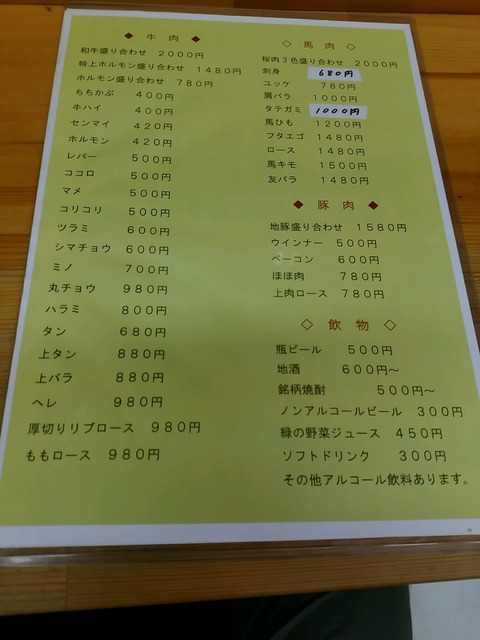 ◆ 牛肉 ◆
和牛盛り合わせ 2000円
特上ホルモン盛り合わせ 1480円
ホルモン盛り合わせ 780円
ちちかぶ 400円
牛ハイ 400円
センマイ 420円
ホルモン 420円
レバー 500円
ココロ 500円
マメ 500円
コリコリ 500円
ツラミ 600円
シマチョウ 600円
ミノ 700円
丸チョウ 980円
ハラミ 800円
タン 680円
上タン 880円
上バラ 880円
ヘレ 980円
厚切りリブロース 980円
ももロース 980円
◇ 馬肉 ◇
桜肉3色盛り合わせ 2000円
刺身 680円
ユッケ 780円
肩バラ 1000円
タテガミ 1000円
馬ひも 1200円
フタエゴ 1480円
ロース 1480円
馬キモ 1500円
友バラ 1480円
◆ 豚肉 ◆
地豚盛り合わせ 1580円
ウインナー 500円
ベーコン 600円
ほほ肉 780円
上肉ロース 780円
◇ 飲物 ◇
瓶ビール 500円
地酒 600円~
銘柄焼酎 500円~
ノンアルコールビール 300円
緑の野菜ジュース 450円
ソフトドリンク 300円
その他アルコール飲料あります。